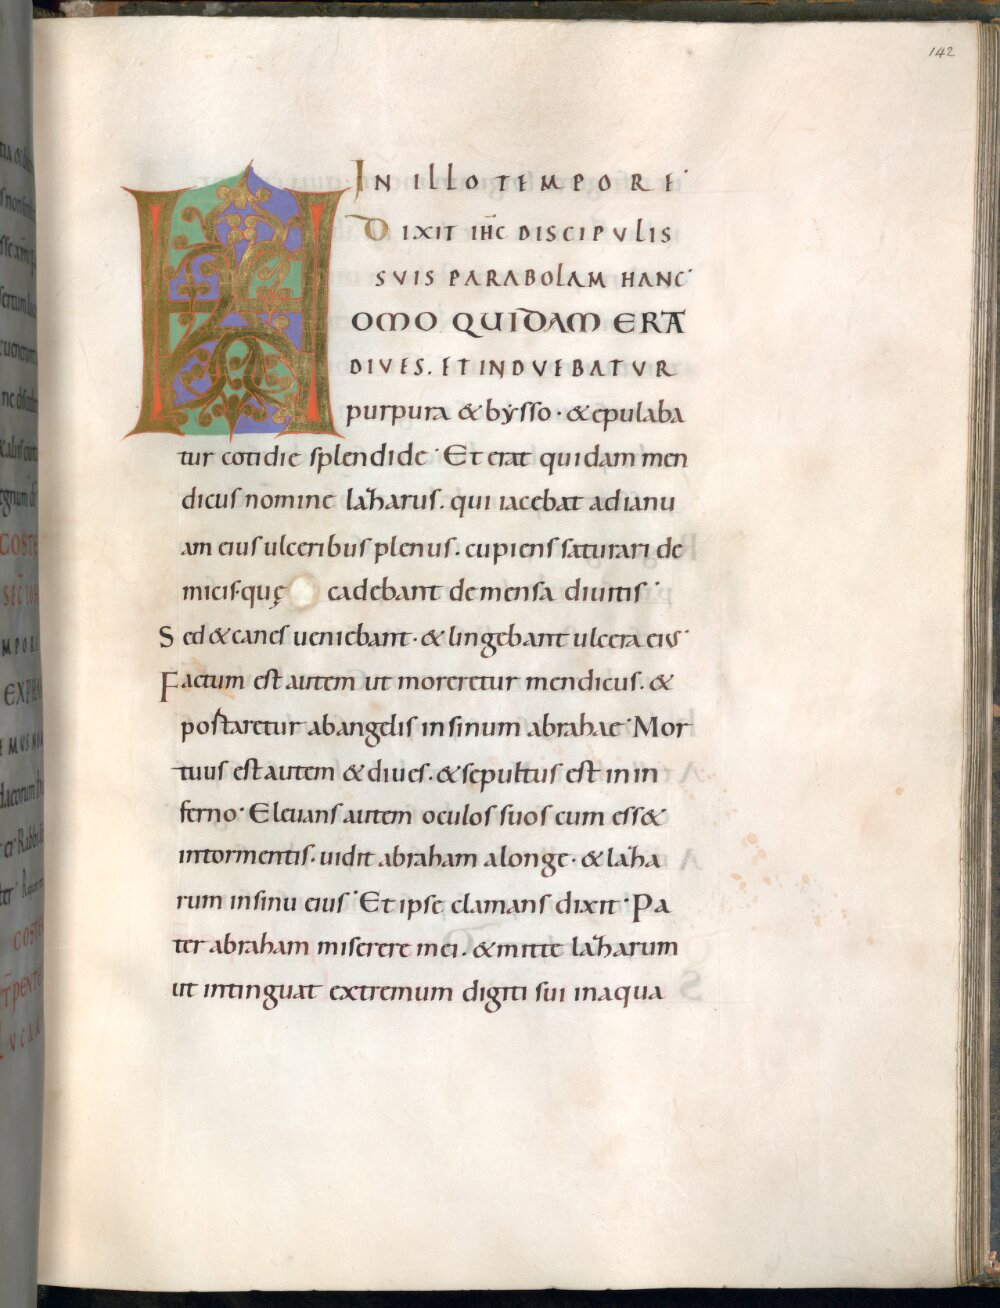 142
IN ILLO TEMPORE
DIXIT IHC DISCIPULIS
SUIS PARABOLAM HANC
HOMO QUIDAM ERA
DIVES. ET INDUEBATUR
purpura & bysso · & epulaba
tur cotidie splendide · Et erat quidam men
dicus nomine lazarus. qui iacebat adianu
am eius ulceribus plenus. cupiens saturari de
micis quę cadebant de mensa diuitis ·
Sed & canes ueniebant · & lingebant ulcera eius ·
Factum est autem ut moreretur mendicus. &
portaretur abangelis insinum abrahae · Mor
tuus est autem & diues. & sepultus est in in
ferno · Eleuans autem oculos suos cum ess&
intormentis. uidit abraham alonge · & laza
rum insinu eius · Et ipse clamans dixit · Pa
ter abraham miserere mei. & mitte lazarum
ut intinguat extremum digiti sui inaqua